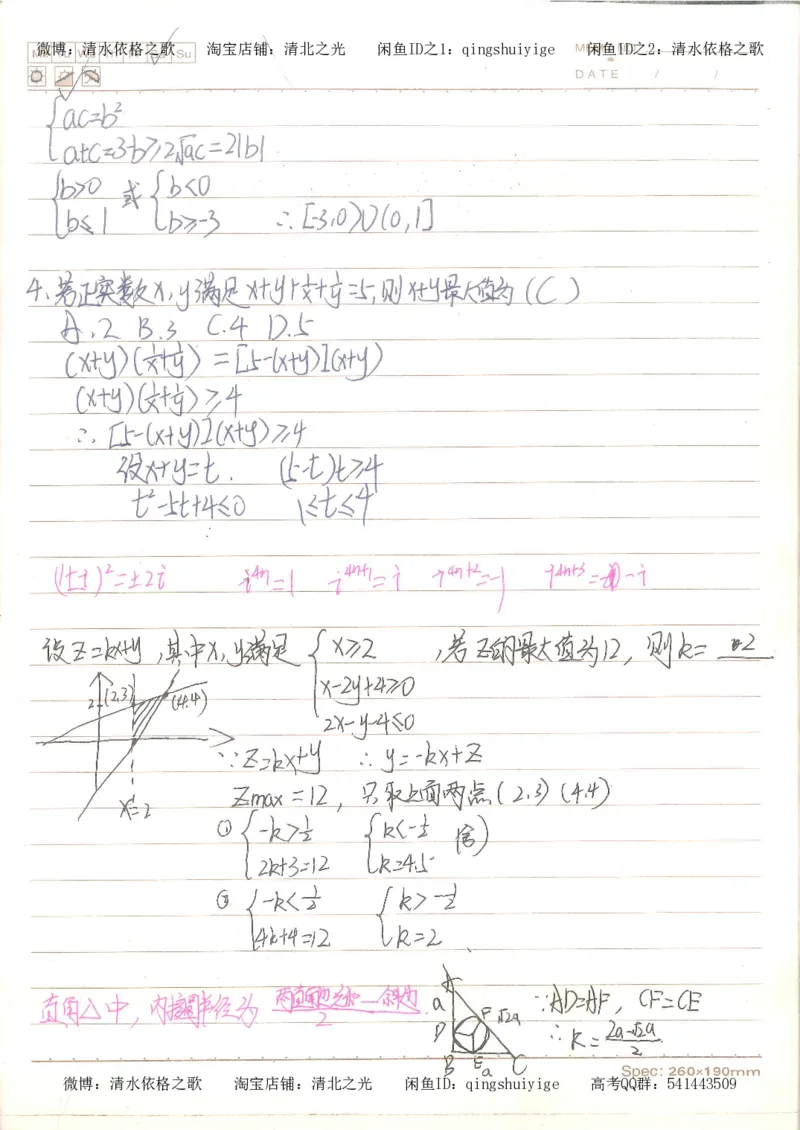 微博：清水依格之歌 淘宝店铺：清北之光 闲鱼ID之1：qingshuiyige 闲鱼ID之2：清水依格之歌
Su
DATE / /
ac=b²
a+c=3-b≥2√ac=2|b|
b>0 或 b<0
b≤1 b≥-3 ∴[-3,0)∪(0,1]
4、若正实数x,y满足x+y+1/x+1/y=5,则x+y最大值为(C)
A.2 B.3 C.4 D.5
(x+y)(1/x+1/y)=[5-(x+y)](x+y)
(x+y)(1/x+1/y)≥4
∴[5-(x+y)](x+y)≥4
设x+y=t. (5-t)t≥4
t²-5t+4≤0 1≤t≤4
(1±i)²=±2i i⁴ⁿ=1 i⁴ⁿ⁺¹=i i⁴ⁿ⁺²=-1 i⁴ⁿ⁺³=-i
设z=kx+y,其中x,y满足 x≥2 ,若z的最大值为12,则k=2
x-2y+4≥0
2x-y-4≤0
2 (2,3) (4,4)
x=2
∵z=kx+y ∴y=-kx+z
Zmax=12,只取上面两点(2,3)(4,4)
① -k>1/2 k<-1/2 (舍)
2k+3=12 k=4.5
② -k<1/2 k>-1/2
4k+4=12 k=2
直角△中,内接圆半径为 两直角边之和-斜边/2
A a D F √2a B E a C
∵AD=AF,CF=CE
∴R=2a-√2a/2
Spec: 260×190mm
微博：清水依格之歌 淘宝店铺：清北之光 闲鱼ID：qingshuiyige 高考QQ群：541443509